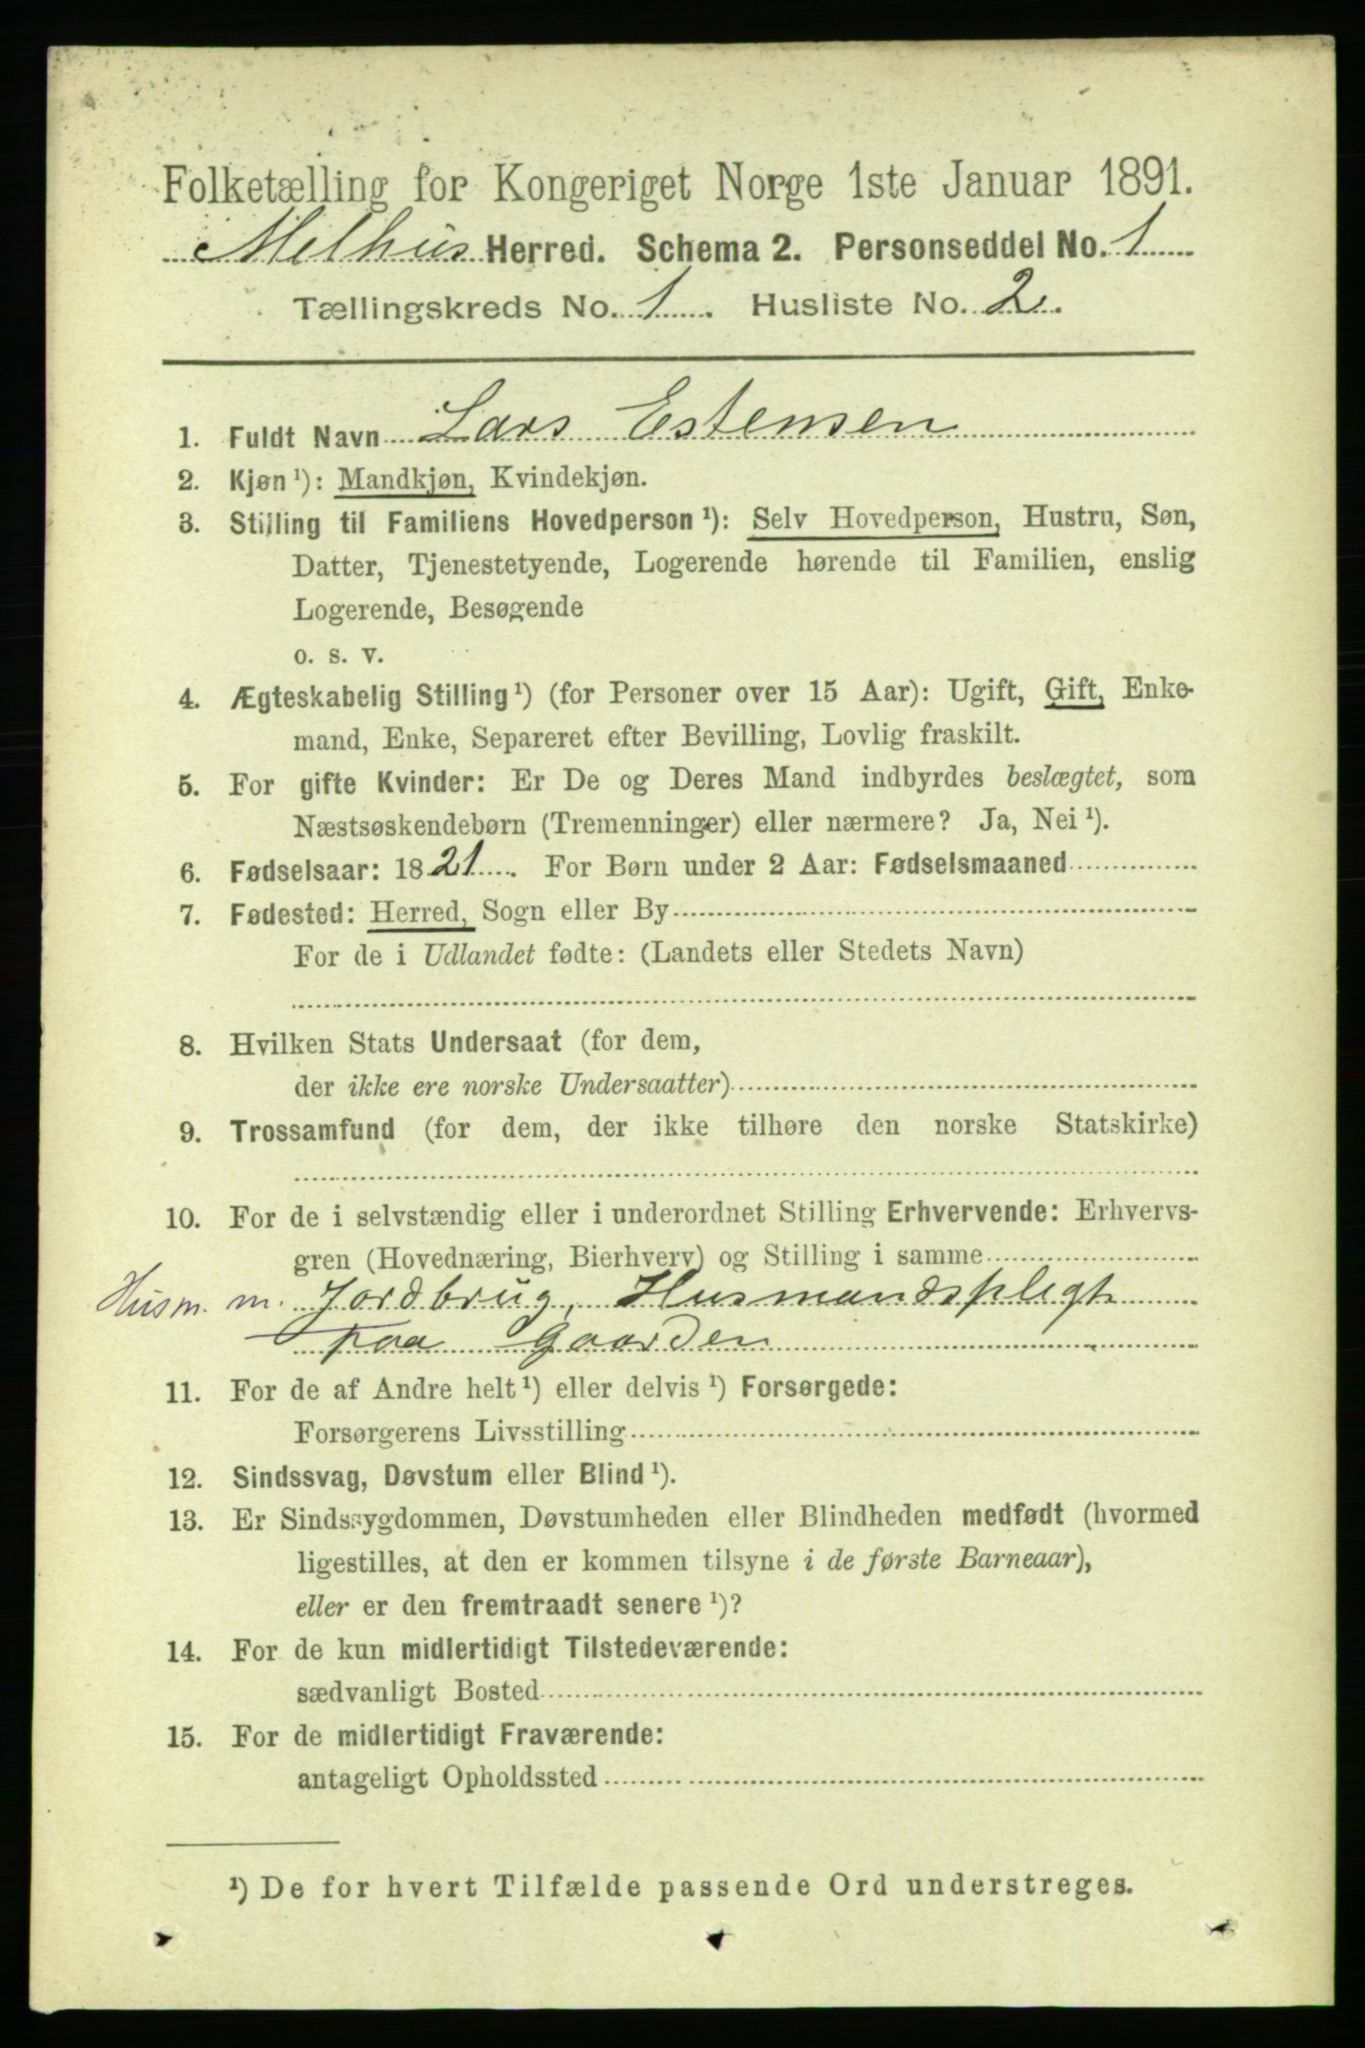 Folketælling for Kongeriget Norge 1ste Januar 1891.
Melhus Herred. Schema 2. Personseddel No. 1
Tællingskreds No. 1. Husliste No. 2.
1. Fuldt Navn Lars Estensen
2. Kjøn ¹): Mandkjøn, Kvindekjøn.
3. Stilling til Familiens Hovedperson ¹): Selv Hovedperson, Hustru, Søn,
Datter, Tjenestetyende, Logerende hørende til Familien, enslig
Logerende, Besøgende
o. s. v.
4. Ægteskabelig Stilling ¹) (for Personer over 15 Aar): Ugift, Gift, Enke-
mand, Enke, Separeret efter Bevilling, Lovlig fraskilt.
5. For gifte Kvinder: Er De og Deres Mand indbyrdes beslægtet, som
Næstsøskendebørn (Tremenninger) eller nærmere? Ja, Nei ¹).
6. Fødselsaar: 1821. For Børn under 2 Aar: Fødselsmaaned
7. Fødested: Herred, Sogn eller By
For de i Udlandet fødte: (Landets eller Stedets Navn)
8. Hvilken Stats Undersaat (for dem,
der ikke ere norske Undersaatter)
9. Trossamfund (for dem, der ikke tilhøre den norske Statskirke)
10. For de i selvstændig eller i underordnet Stilling Erhvervende: Erhvervs-
gren (Hovednæring, Bierhverv) og Stilling i samme
Husm. m. Jordbrug, Husmandspligt
paa Gaarden
11. For de af Andre helt ¹) eller delvis ¹) Forsørgede:
Forsørgerens Livsstilling
12. Sindssvag, Døvstum eller Blind ¹).
13. Er Sindssygdommen, Døvstumheden eller Blindheden medfødt (hvormed
ligestilles, at den er kommen tilsyne i de første Barneaar),
eller er den fremtraadt senere ¹)?
14. For de kun midlertidigt Tilstedeværende:
sædvanligt Bosted
15. For de midlertidigt Fraværende:
antageligt Opholdssted
¹) De for hvert Tilfælde passende Ord understreges.